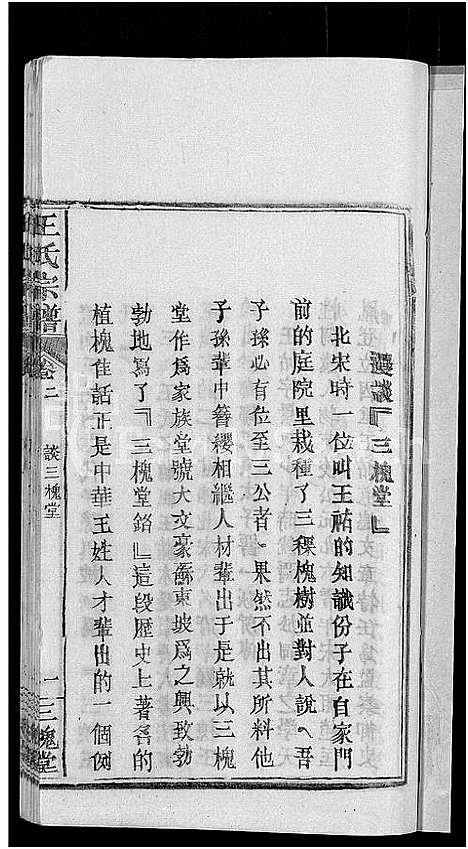 漫談『三槐堂』
北宋時一位叫王祐的知識份子在自家門
前的庭院里栽種了三稞槐樹並對人說《吾
子孫必有位至三公者》果然不出其所料他
子孫輩中簪纓相繼人材輩出于是就以三槐
堂作爲家族堂號大文豪蘇東坡爲之興致勃
勃地寫了『三槐堂銘』這段歷史上著名的
植槐佳話正是中華王姓人才輩出的一個例
王氏宗譜
卷二
談三槐堂
一
三槐堂